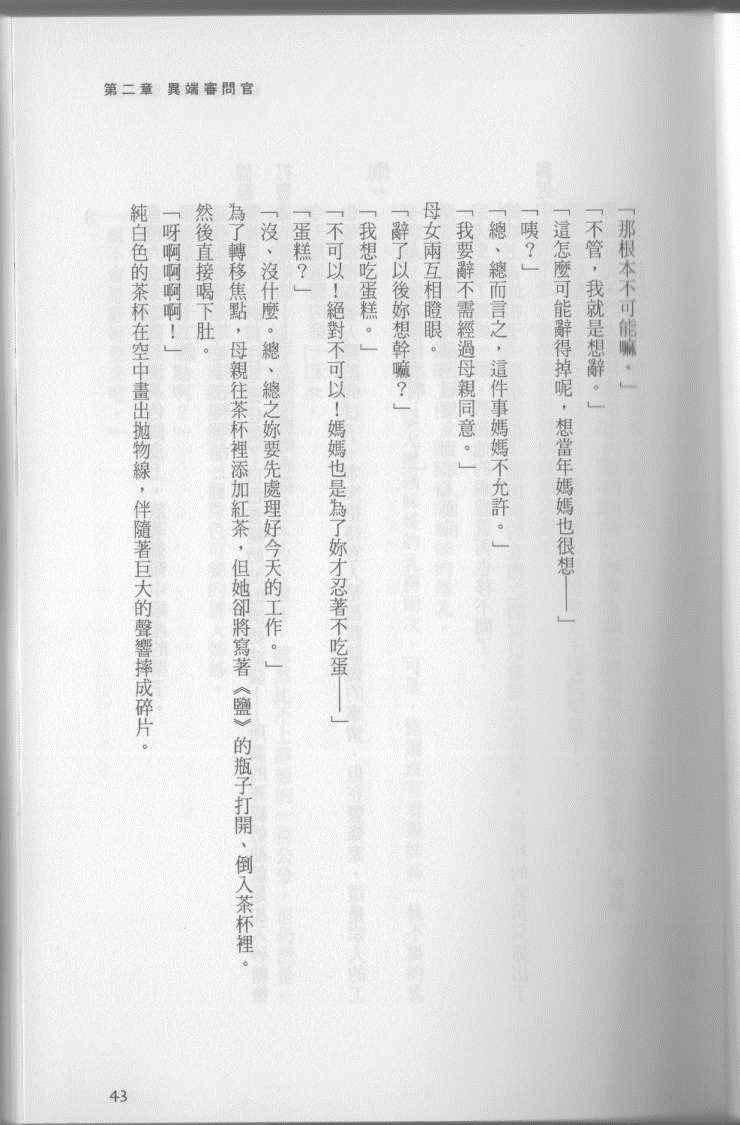 第二章 異端審問官
「那根本不可能嘛。」
「不管，我就是想辭。」
「這怎麼可能辭得掉呢，想當年媽媽也很想——」
「咦？」
「總、總而言之，這件事媽媽不允許。」
「我要辭不需經過母親同意。」
母女兩互相瞪眼。
「辭了以後妳想幹嘛？」
「我想吃蛋糕。」
「不可以！絕對不可以！媽媽也是為了妳才忍著不吃蛋——」
「蛋糕？」
「沒、沒什麼。總、總之妳要先處理好今天的工作。」
為了轉移焦點，母親往茶杯裡添加紅茶，但她卻將寫著《鹽》的瓶子打開、倒入茶杯裡。
然後直接喝下肚。
「呀啊啊啊啊！」
純白色的茶杯在空中畫出拋物線，伴隨著巨大的聲響摔成碎片。
43